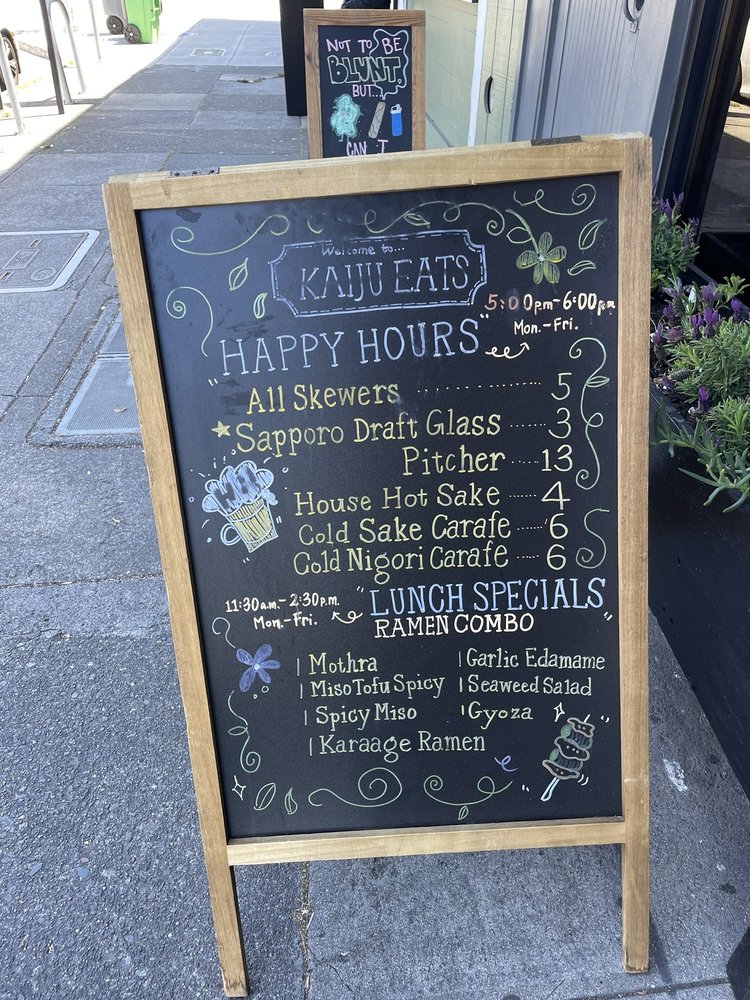 NOT TO BE
BLUNT,
BUT...
CAN I
Welcome to...
KAIJU EATS
5:00pm-6:00pm
Mon.-Fri.
"HAPPY HOURS"
All Skewers ............... 5
Sapporo Draft Glass ..... 3
Pitcher ..... 13
House Hot Sake ....... 4
Cold Sake Carafe ..... 6
Cold Nigori Carafe ..... 6
11:30a.m.-2:30p.m.
Mon.-Fri.
"LUNCH SPECIALS"
RAMEN COMBO
| Mothra
| Miso Tofu Spicy
| Spicy Miso
| Karaage Ramen
| Garlic Edamame
| Seaweed Salad
| Gyoza